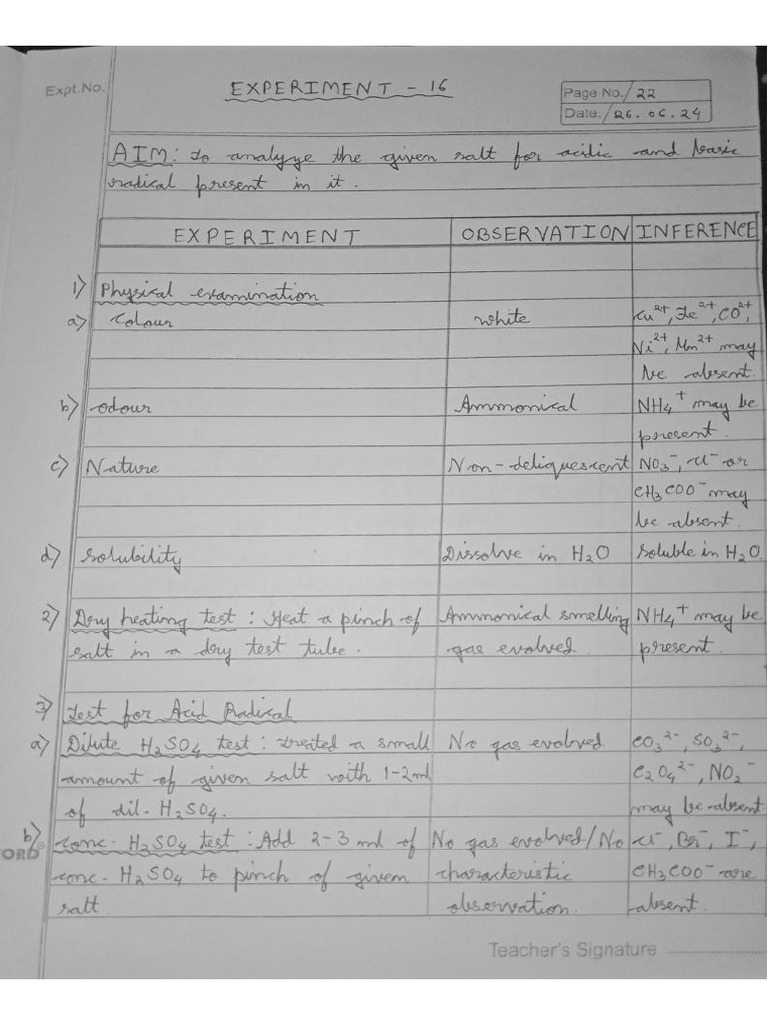 Expt.No.
EXPERIMENT - 16
Page No. 22
Date. 26.06.24
AIM: To analyze the given salt for acidic and basic
radical present in it.
EXPERIMENT OBSERVATION INFERENCE
1) Physical examination
a) Colour White Cu²⁺, Fe²⁺, CO²⁺,
Ni²⁺, Mn²⁺ may
be absent.
b) Odour Ammonical NH₄⁺ may be
present.
c) Nature Non-deliquescent NO₃⁻, Cl⁻ or
CH₃COO⁻ may
be absent.
d) Solubility Dissolve in H₂O Soluble in H₂O.
2) Dry heating test: Heat a pinch of Ammonical smelling NH₄⁺ may be
salt in a dry test tube. gas evolved. present.
3) Test for Acid Radical
a) Dilute H₂SO₄ test: Treated a small No gas evolved CO₃²⁻, SO₃²⁻,
amount of given salt with 1-2 ml C₂O₄²⁻, NO₂⁻
of dil. H₂SO₄. may be absent
b) Conc. H₂SO₄ test: Add 2-3 ml of No gas evolved/No Cl⁻, Br⁻, I⁻,
ORD
conc. H₂SO₄ to pinch of given characteristic CH₃COO⁻ are
salt. observation. absent.
Teacher's Signature